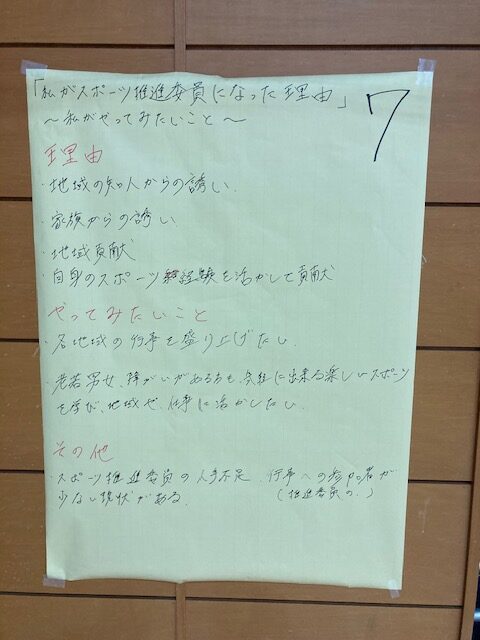 「私がスポーツ推進委員になった理由」
～私がやってみたいこと～
7
理由
・地域の知人からの誘い.
・家族からの誘い
・地域貢献
・自身のスポーツ経験を活かして貢献
やってみたいこと
・各地域の行事を盛り上げたい.
・老若男女、障がいがある方も、一緒に出来る楽しいスポーツ
を学び、地域や、仕事に活かしたい.
その他
・スポーツ推進委員の人手不足. 行事への参加者が
少ない現状がある.
(推進委員の.)